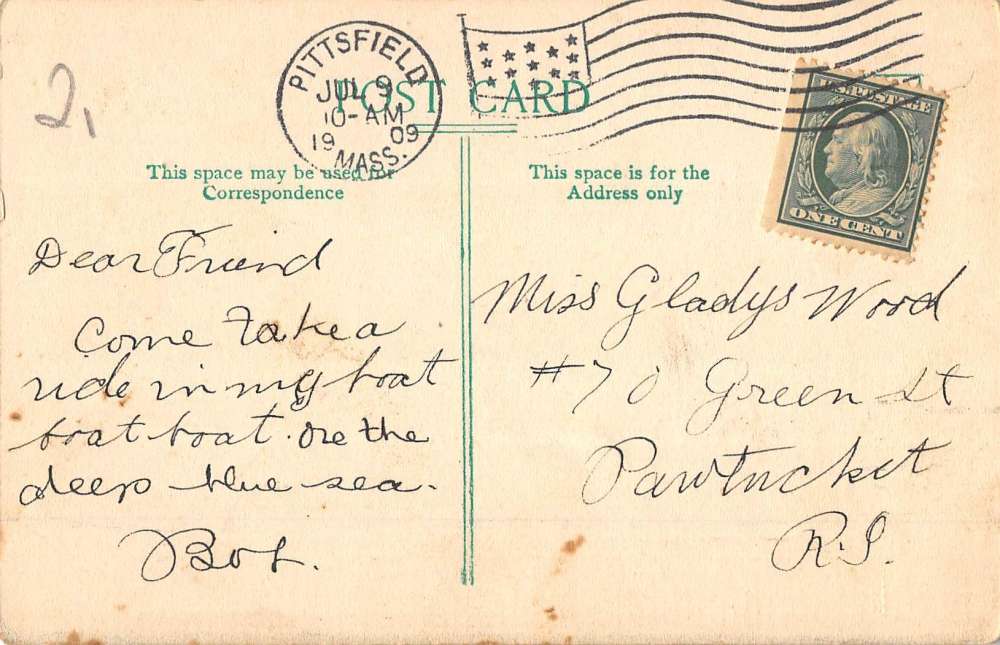 2,
PITTSFIELD
JUL 9
10-AM
19 09
MASS.
POST CARD
U.S. POSTAGE
ONE CENT
This space may be used for
Correspondence
This space is for the
Address only
Dear Friend
Come take a
ride in my boat
boat boat. on the
deep blue sea.
Bob.
Miss Gladys Wood
#70 Green St
Pawtucket
R.I.